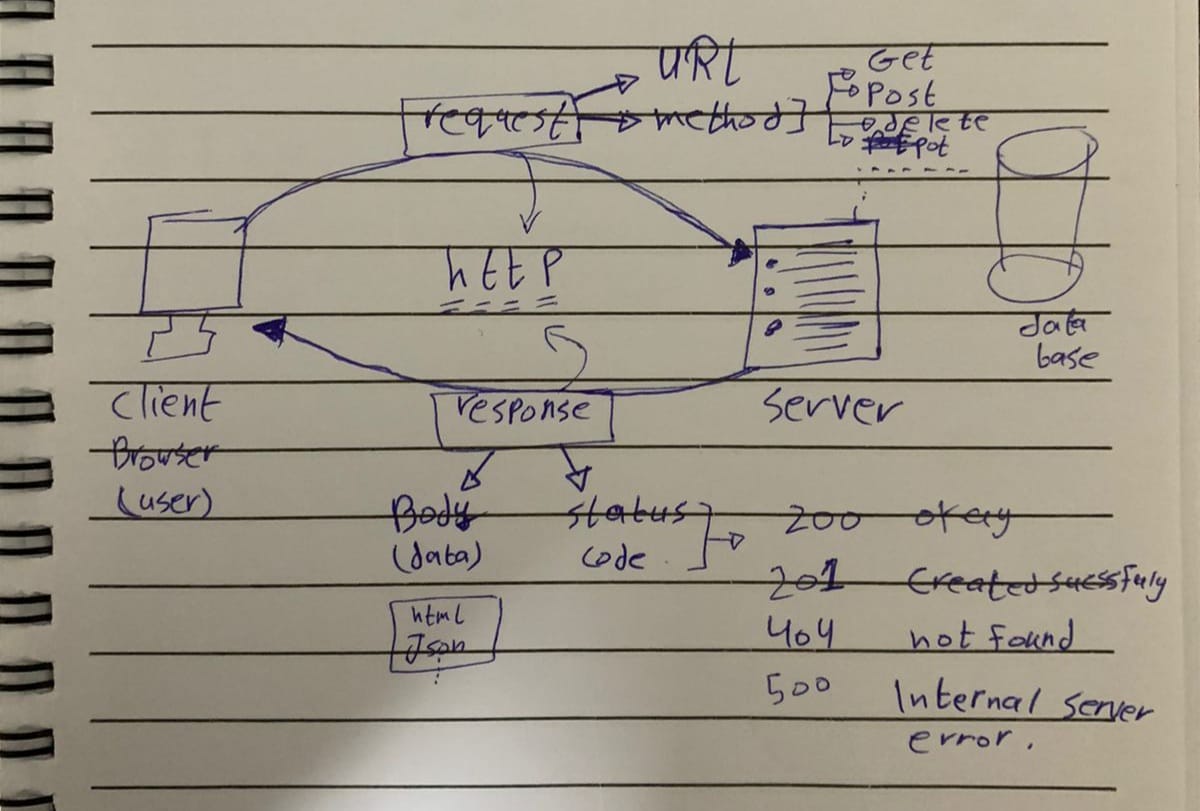 URL
request
method
Get
Post
delete
pot
http
data
base
client
Browser
(user)
response
server
Body
(data)
status
code
html
Json
200 okay
201 Created sucssfuly
404 not found
500 Internal server
error.